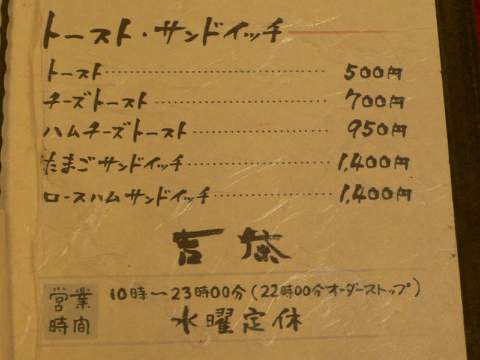 トースト・サンドイッチ
トースト……………………………… 500円
チーズトースト……………………… 700円
ハムチーズトースト………………… 950円
たまごサンドイッチ………………… 1,400円
ロースハムサンドイッチ…………… 1,400円
吉茶
営業時間
10時〜23時00分(22時00分オーダーストップ)
水曜定休